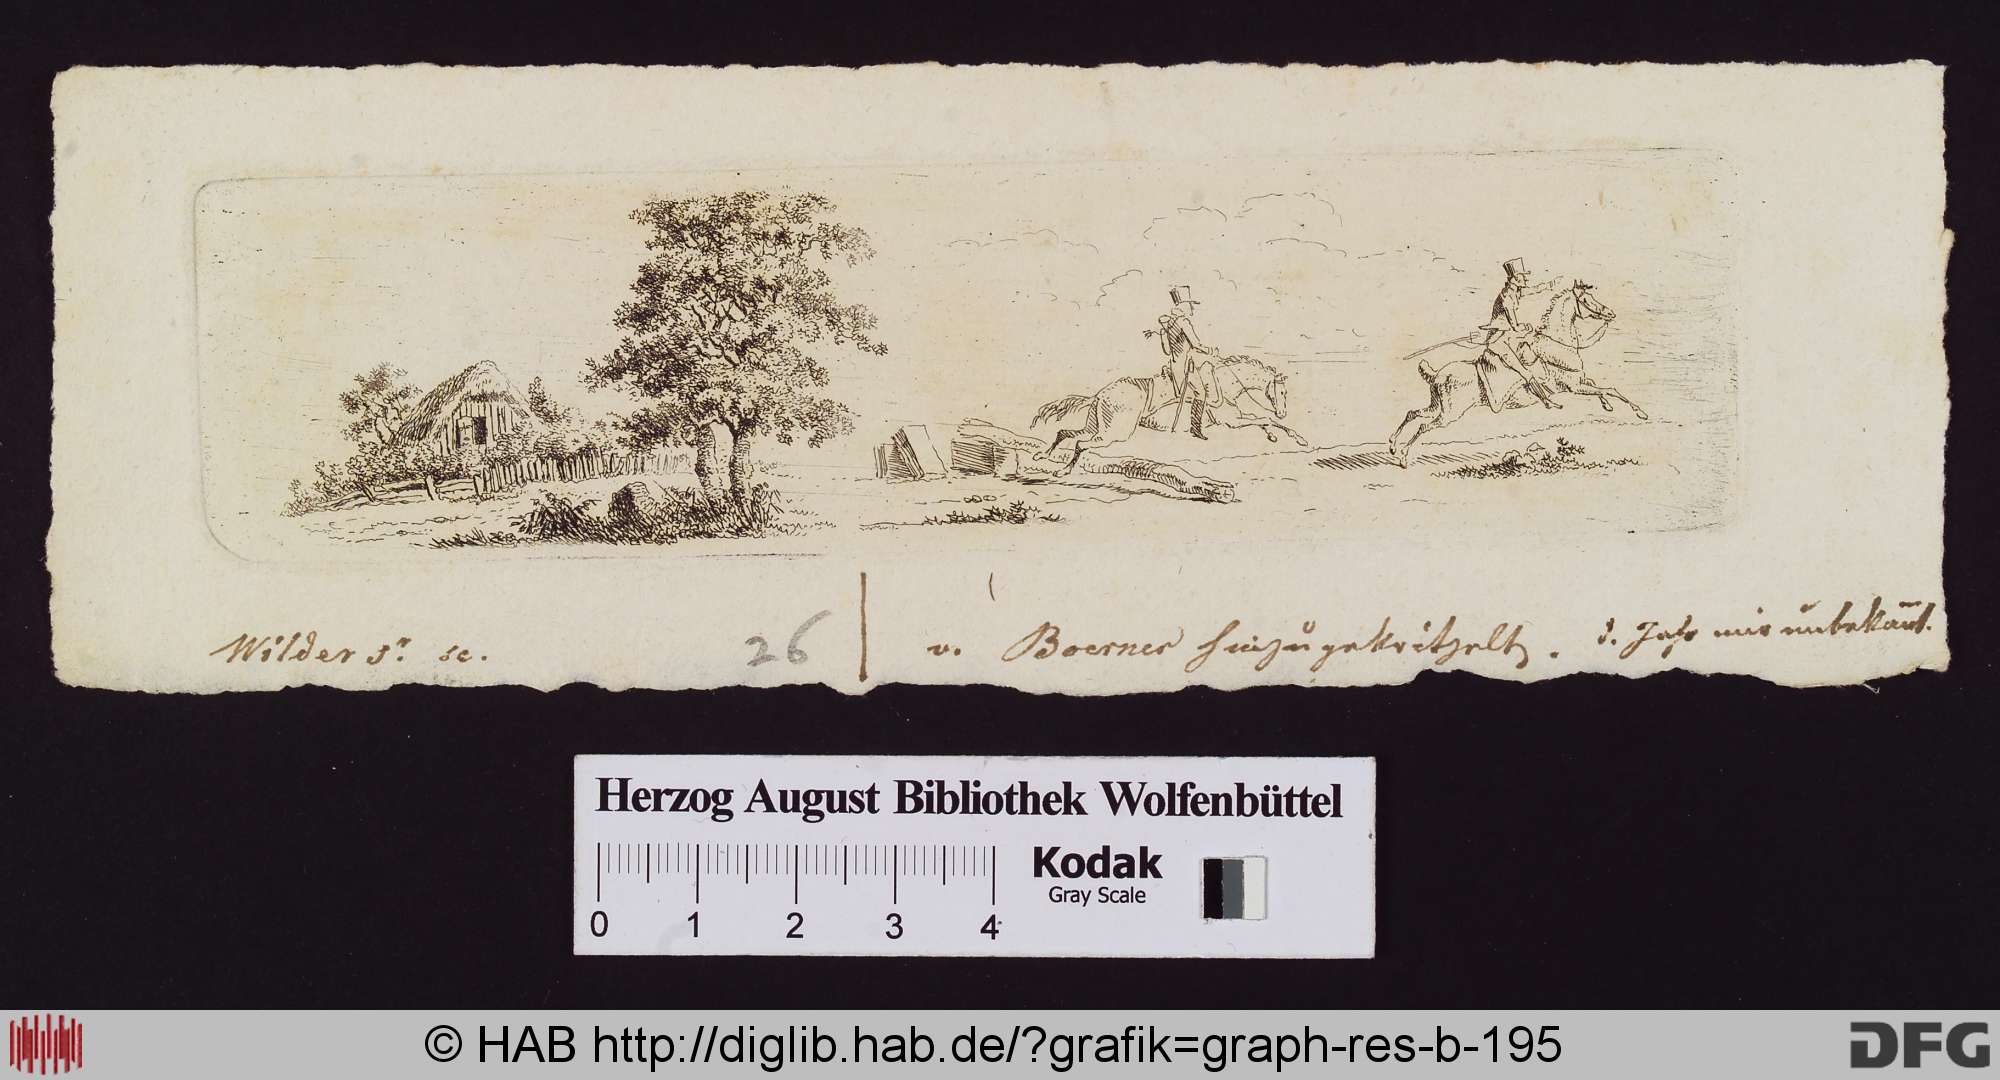 Wilder sr. sc.
26
v. Boerner hinzugekritzelt. d. Jahr mir unbekañt.
Herzog August Bibliothek Wolfenbüttel
0 1 2 3 4
Kodak
Gray Scale
© HAB http://diglib.hab.de/?grafik=graph-res-b-195
DFG